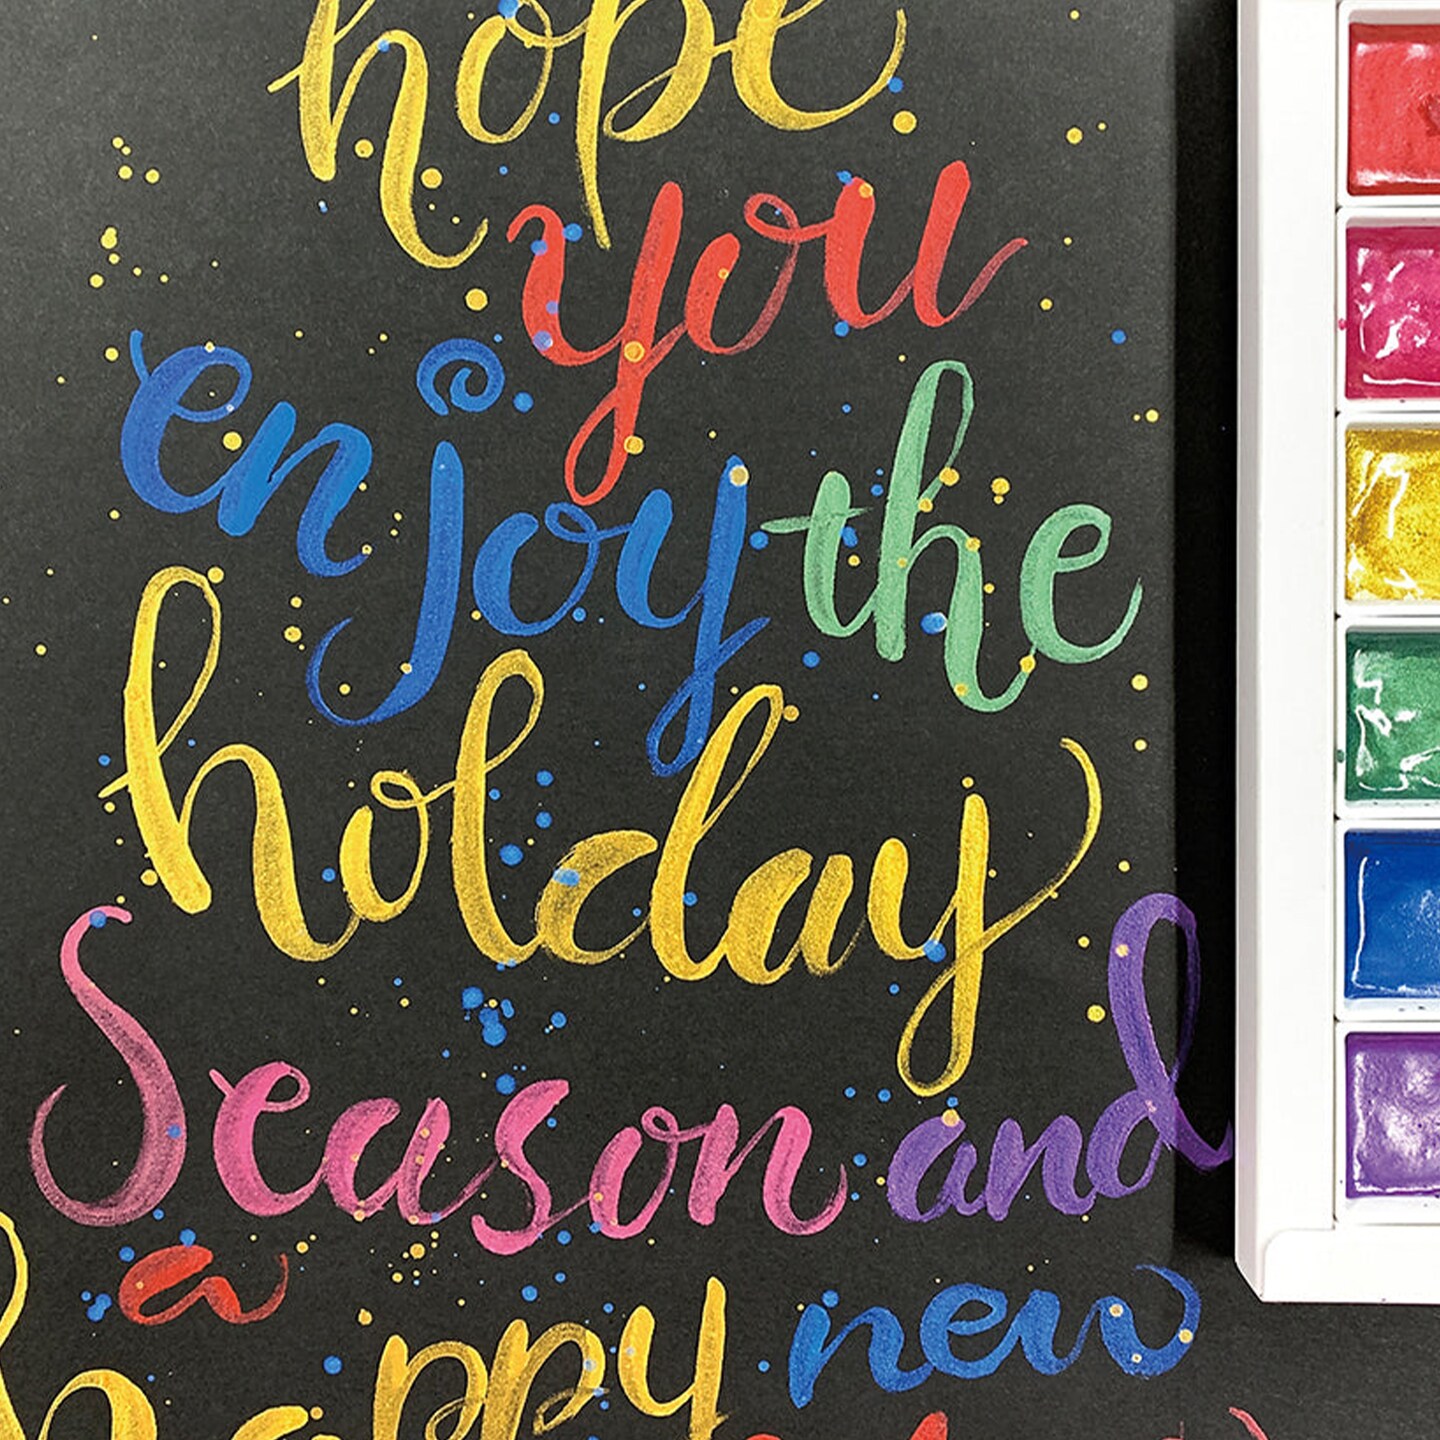 hope
you
enjoy the
holday
Season and
a happy new